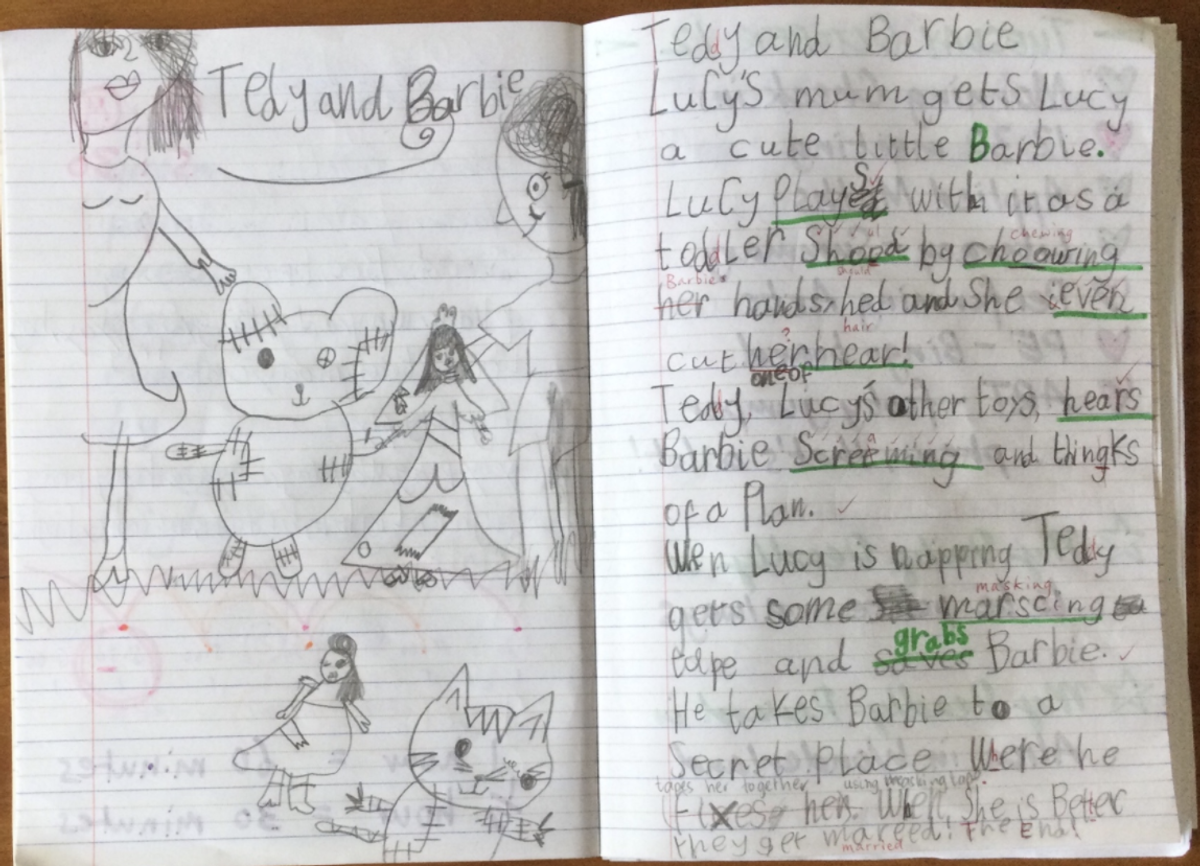 Tedy and Barbie
Teddy and Barbie
Lucy's mum gets Lucy
a cute little Barbie.
Lucy plays with it as a
toddler should by choowing
chewing
Barbie's
her hands, hed and she even
cut her hear!
hair
one of
Teddy, Lucy's other toys, hears
Barbie Screaming and thingks
of a Plan.
When Lucy is napping Teddy
masking
gets some marscing
grabs
tape and saves Barbie.
He takes Barbie to a
Secret place Where he
tapes her together using masking tape.
Fixes her. When She is Better
they get mareed! The End!
married
minutes
30
minutes